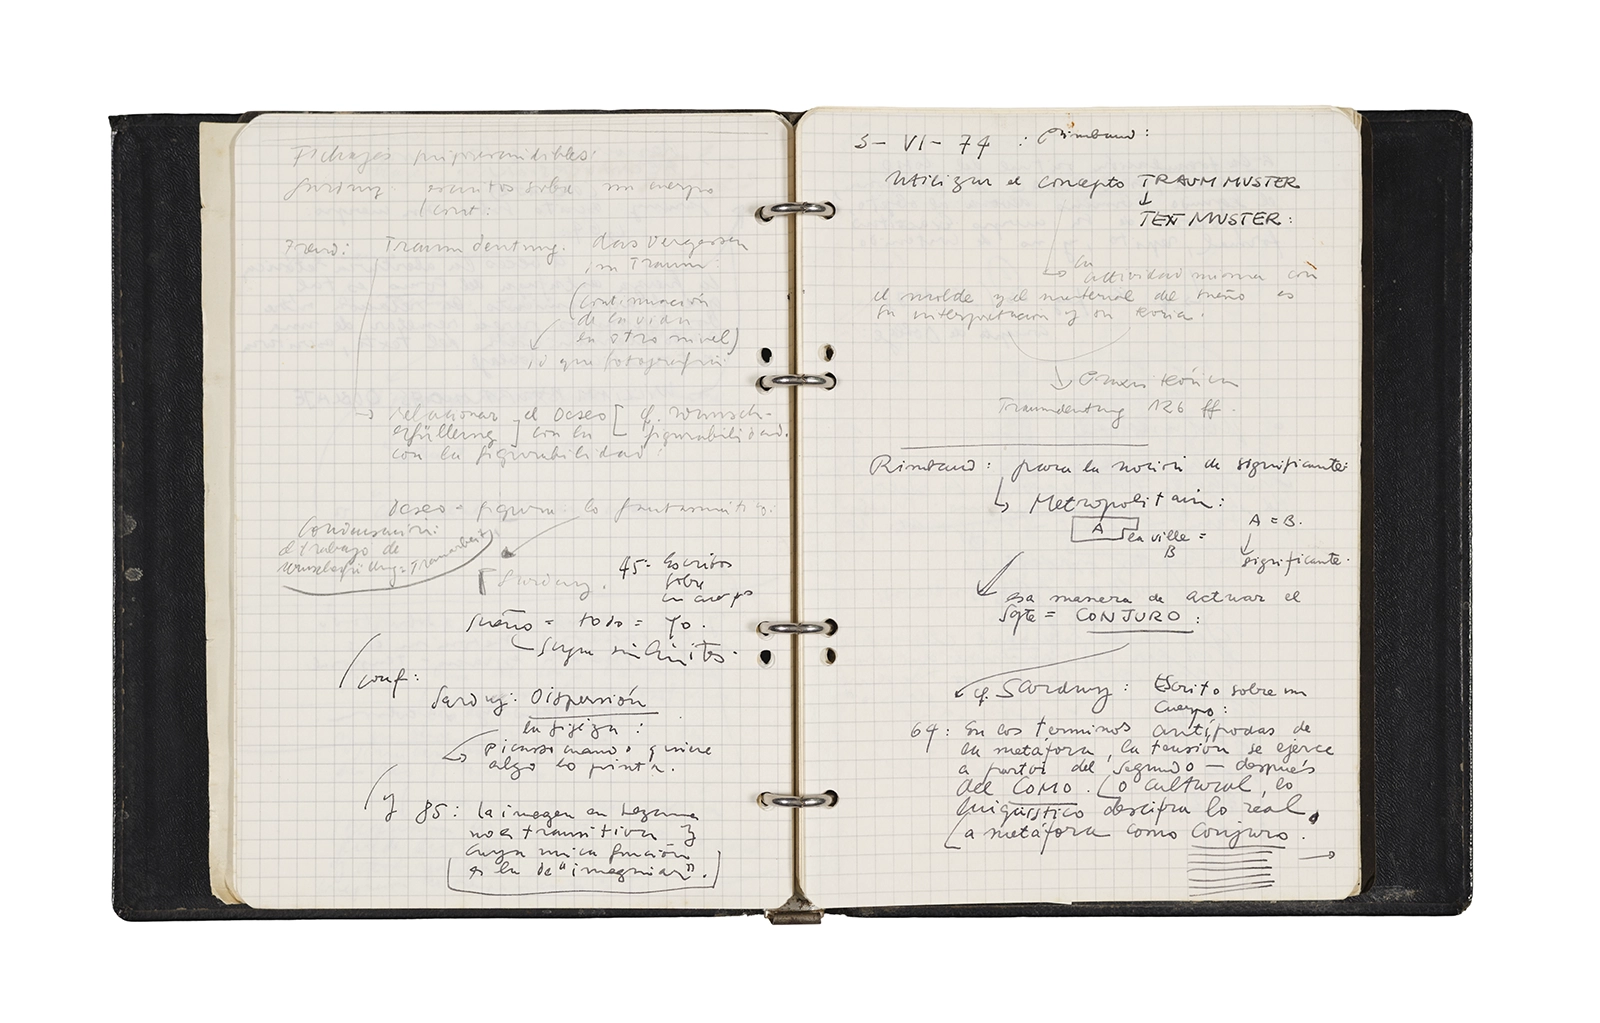 Fichajes imprescindibles:
Sarduy: escritos sobre un cuerpo
Freud: Traumdeutung. das Vergessen
im Traum:
(continuación
de la
en otro nivel)
lo que
→ relacionar el deseo [cf. Wunsch-
erfüllung] con la [figurabilidad.
con la figurabilidad.
deseo = figura: lo
Condensación:
el trabajo de
Wunscherfüllung = Traumarbeit
Sarduy. 45 = Escritos
sobre
un cuerpo
sueño = todo = yo.
sin límites.
conf:
Sarduy: Dispersión
la fijeza:
Picasso cuando quiere
algo lo pinta.
y 85: la imagen en Lezama
no es transitiva y
cuya única función
es la de "imaginar".
5 - VI - 74 : Rimbaud:
Utilizar el concepto TRAUM MUSTER
↓
TEXT MUSTER:
→ la
actividad misma con
el molde y el material del sueño es
su interpretación y su teoría.
teórica
Traumdeutung 126 ff.
Rimbaud: para la noción de significante:
Metropolitain:
A la ville =
B
A = B.
↓
significante.
esa manera de actuar el
sgte = CONJURO:
cf. Sarduy: Escrito sobre un
Cuerpo:
64: En los terminos antípodas de
la metáfora, la tensión se ejerce
a partir del segundo — después
del COMO. Lo cultural, lo
lingüístico descifra lo real,
La metáfora como Conjuro.
→